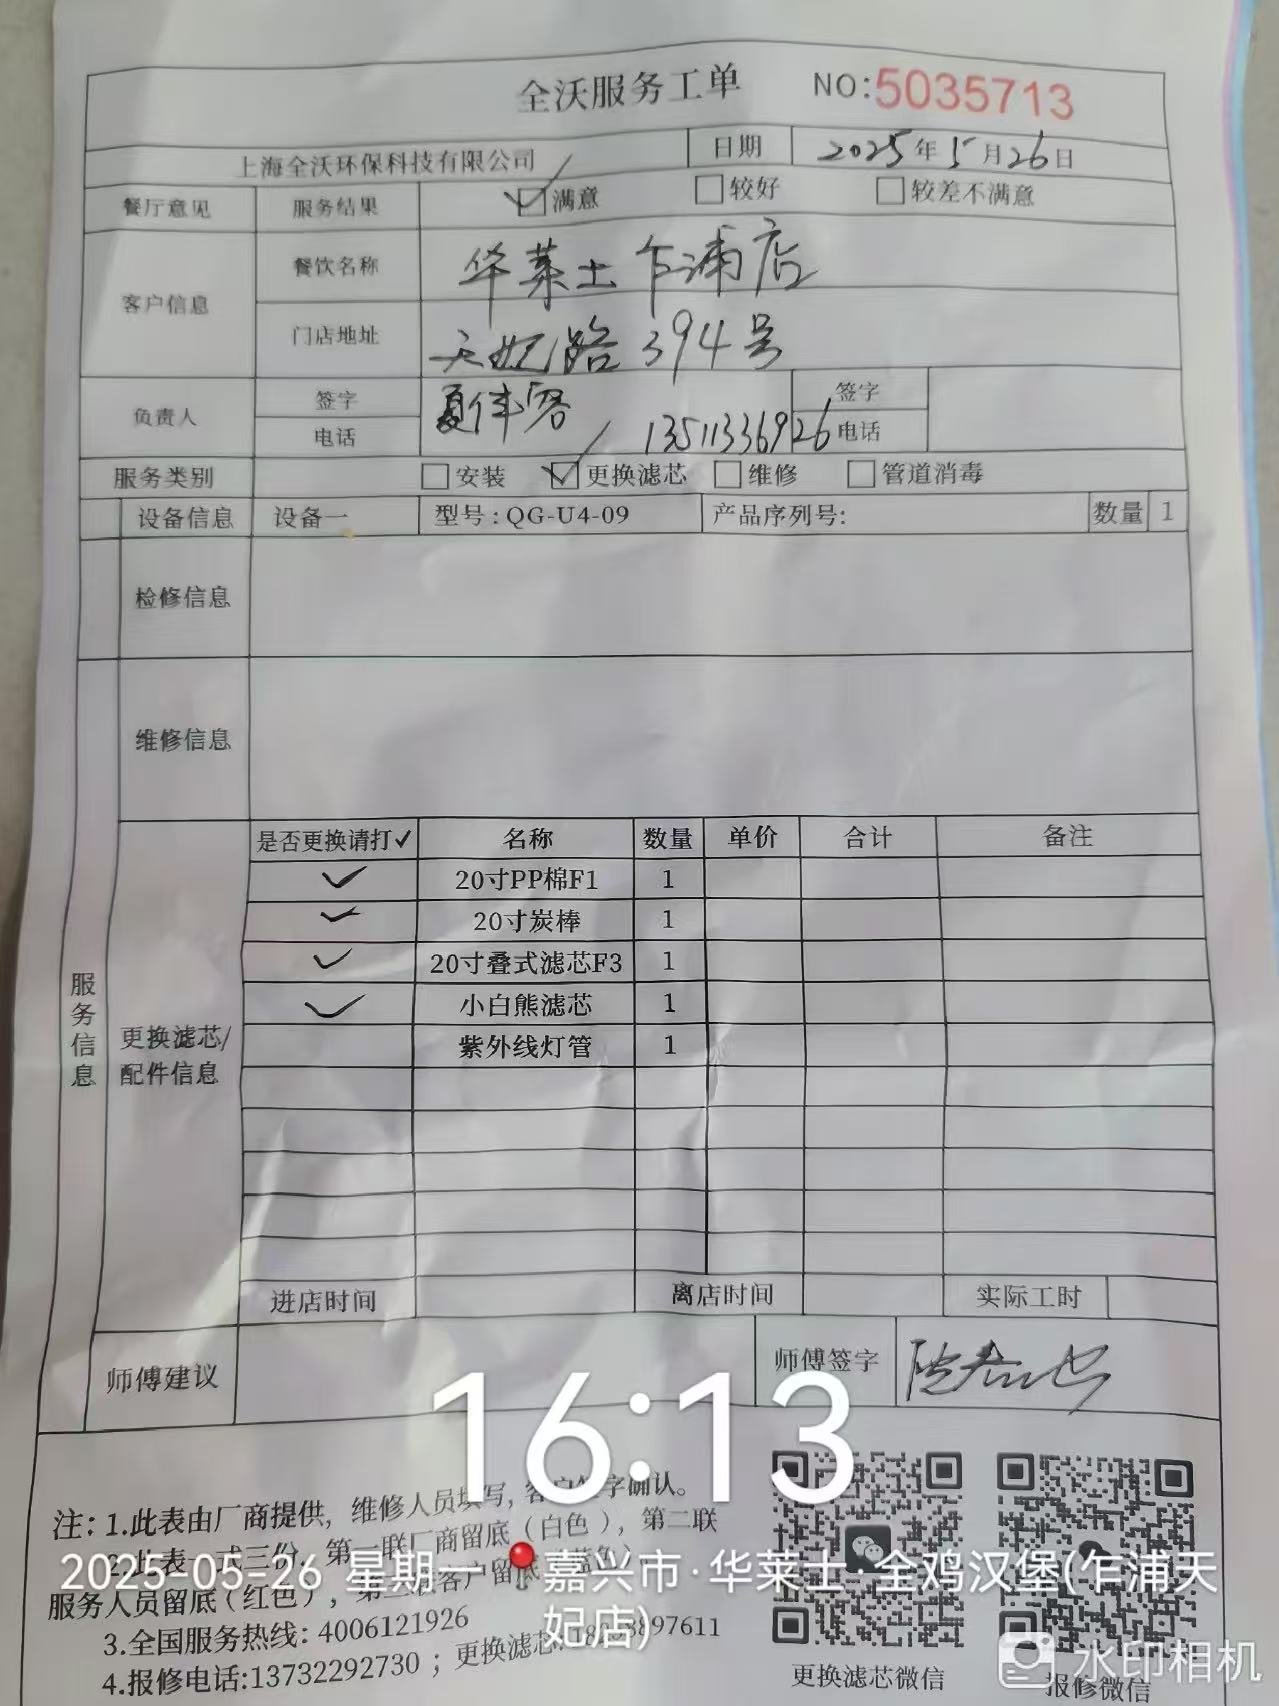 全沃服务工单 NO:5035713
上海全沃环保科技有限公司 日期 2025年5月26日
餐厅意见 服务结果 满意 较好 较差不满意
客户信息 餐饮名称 华莱士乍浦店
门店地址 天妃路394号
负责人 签字 签字
电话 13511336926 电话
服务类别 安装 更换滤芯 维修 管道消毒
设备信息 设备一 型号:QG-U4-09 产品序列号: 数量 1
检修信息
维修信息
服务信息
更换滤芯/配件信息
是否更换请打✓ 名称 数量 单价 合计 备注
✓ 20寸PP棉F1 1
✓ 20寸炭棒 1
✓ 20寸叠式滤芯F3 1
✓ 小白熊滤芯 1
紫外线灯管 1
进店时间 离店时间 实际工时
师傅建议 师傅签字
16:13
注:1.此表由厂商提供,维修人员填写,客户签字确认。
2.此表一式三份,第一联厂商留底(白色),第二联
服务人员留底(红色),第三联客户留底(蓝色)
3.全国服务热线:4006121926
4.报修电话:13732292730;更换滤芯
2025-05-26 星期一 嘉兴市·华莱士·全鸡汉堡(乍浦天
妃店)
更换滤芯微信 报修微信
水印相机